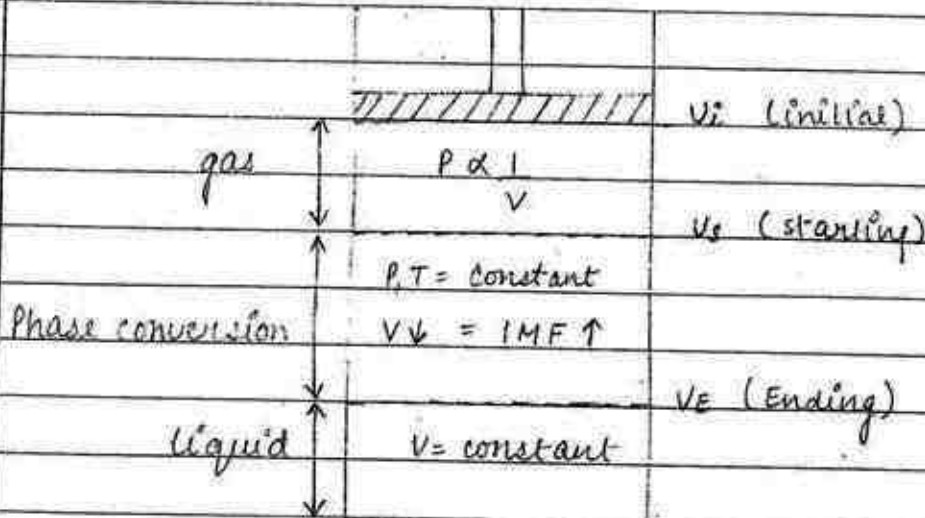 Vi (initial)
gas
P α 1
V
Vs (starting)
P, T = constant
Phase conversion
V↓ = IMF ↑
VE (Ending)
liquid
V = constant